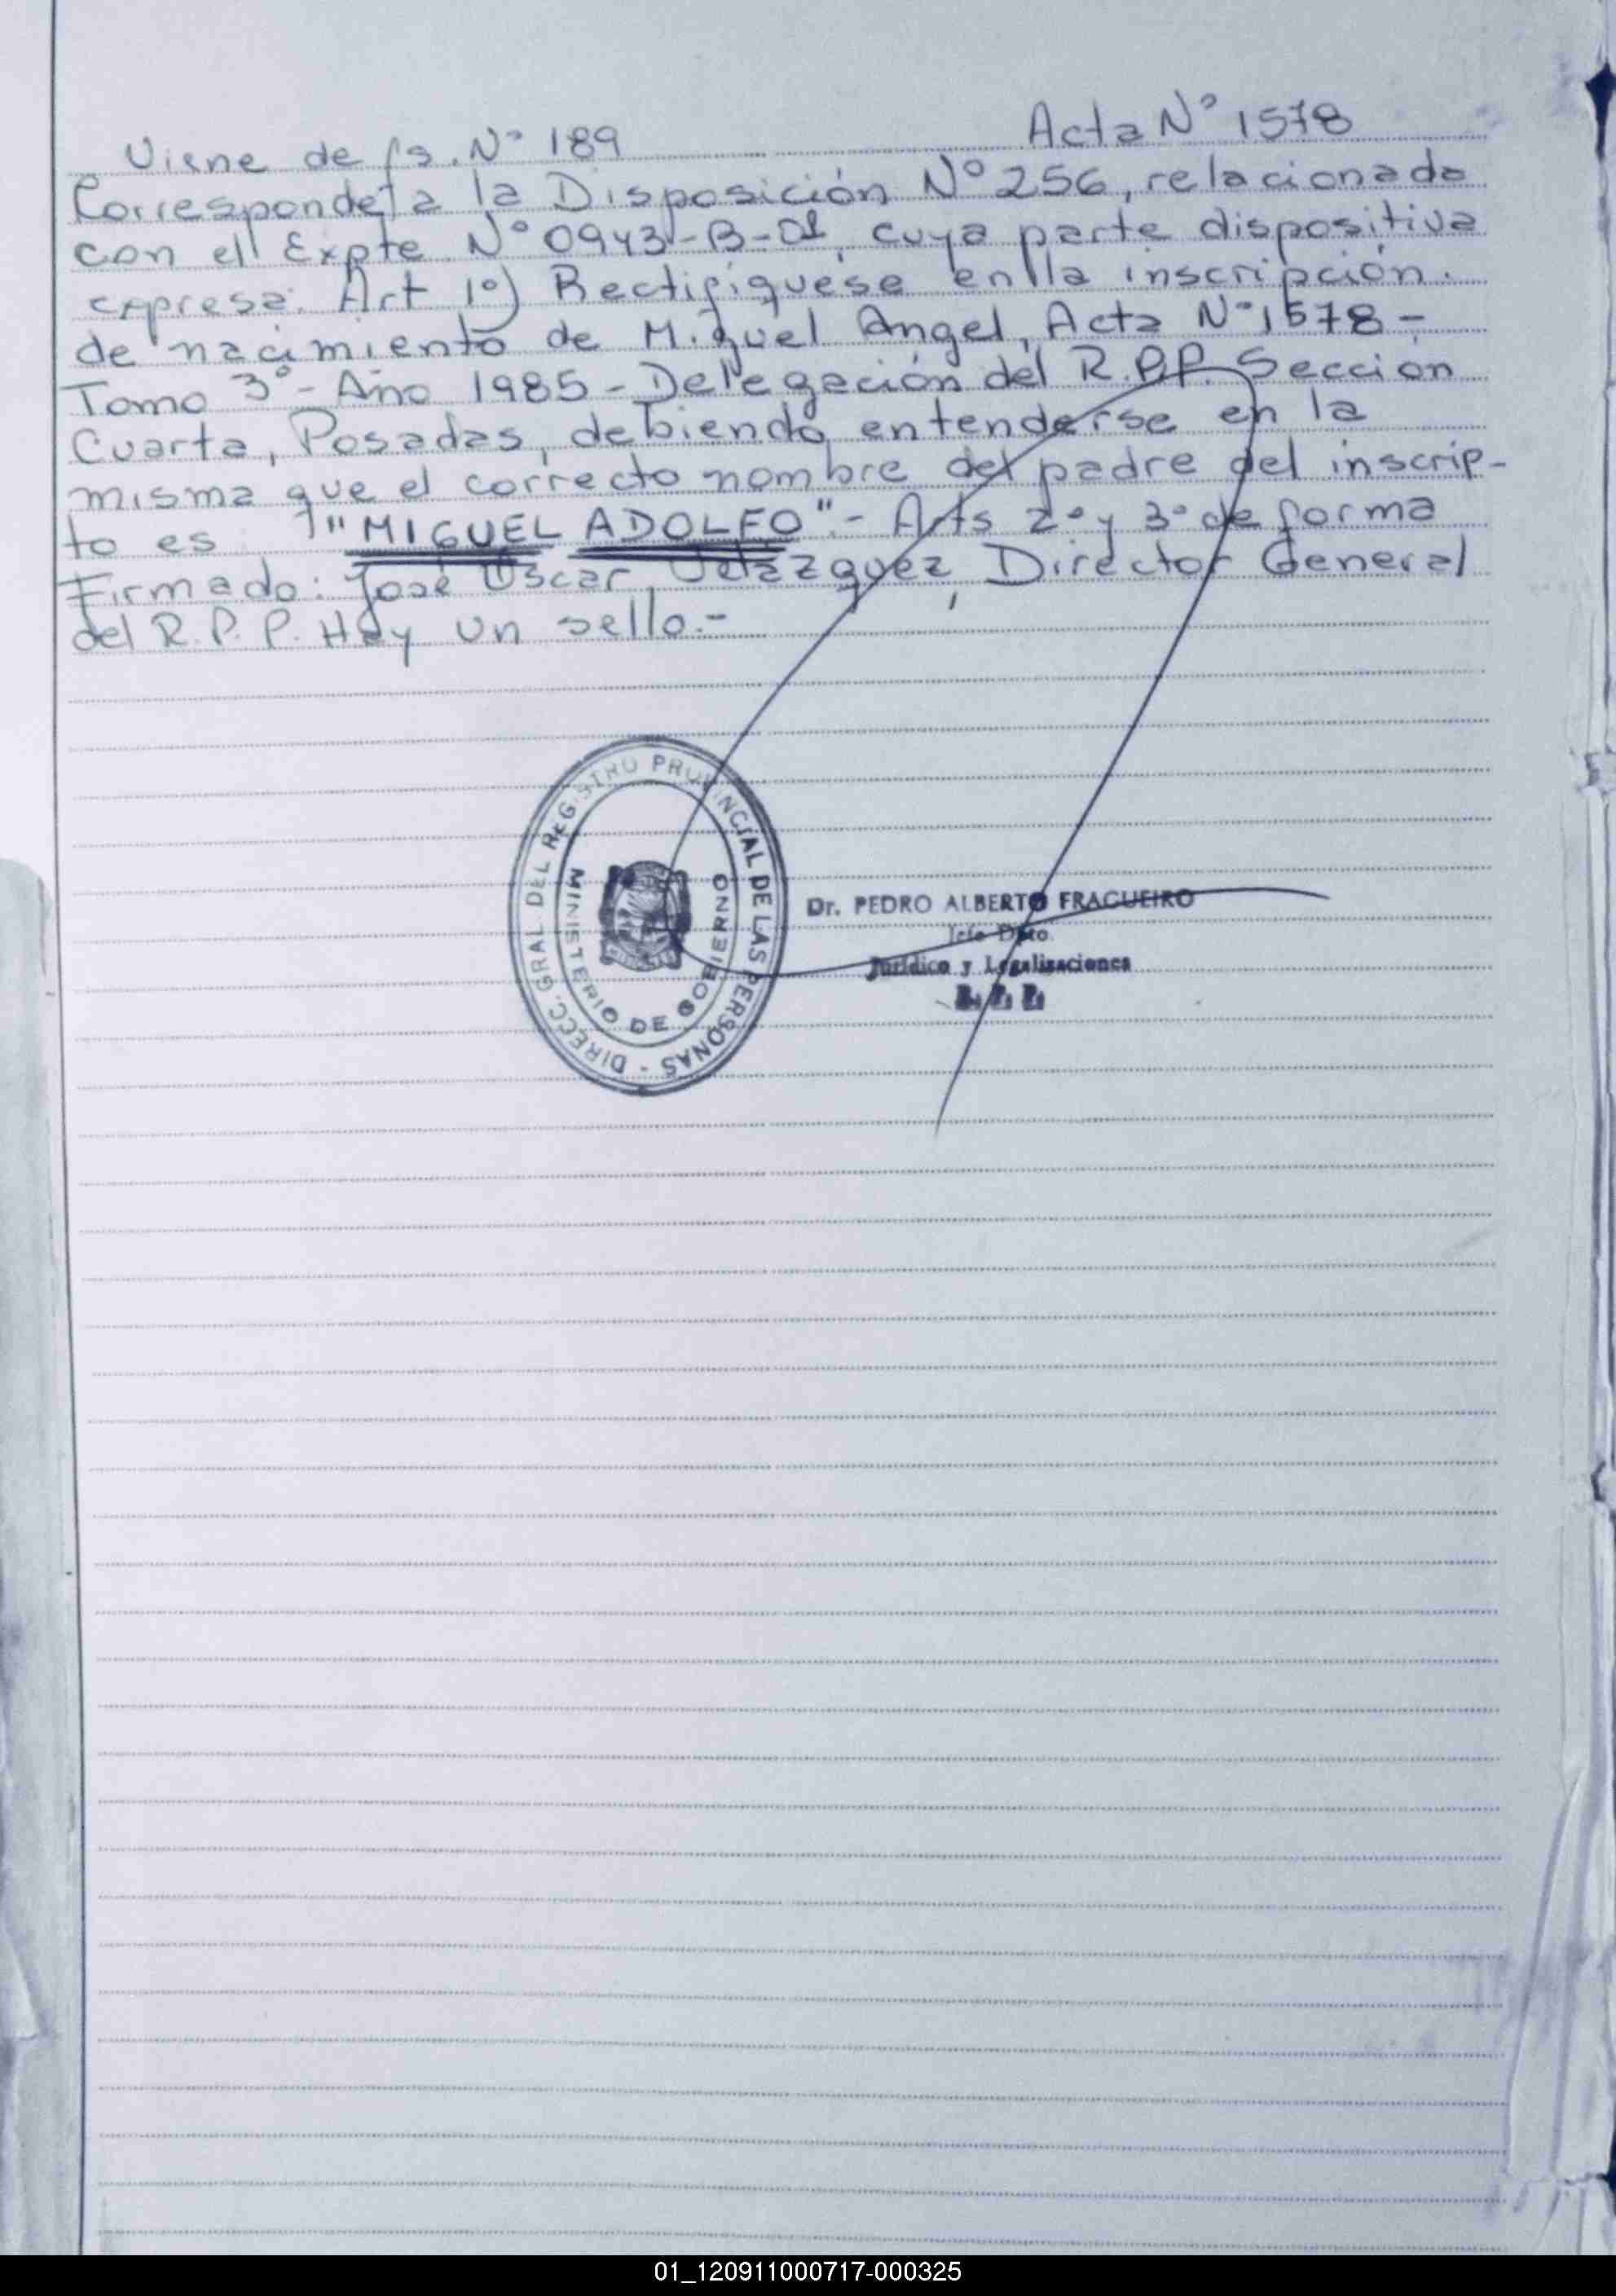 Viene de fs. Nº 189 Acta Nº 1578
Corresponde a la Disposición Nº 256, relacionada
con el Expte Nº 0943-B-01, cuya parte dispositiva
expresa: Art 1º) Rectifíquese en la inscripción
de nacimiento de Miguel Angel, Acta Nº 1578-
Tomo 3º - Año 1985 - Delegación del R.P.P. Sección
Cuarta, Posadas, debiendo entenderse en la
misma que el correcto nombre del padre del inscrip-
to es "MIGUEL ADOLFO".- Arts 2º y 3º de forma
Firmado: José Oscar Velázquez, Director General
del R.P.P. Hay un sello.-
DIRECC. GRAL. DEL REGISTRO PROVINCIAL DE LAS PERSONAS -
MINISTERIO DE GOBIERNO
Dr. PEDRO ALBERTO FRAGUEIRO
Jefe Dpto.
Jurídico y Legalizaciones
R. P. P.
01_120911000717-000325